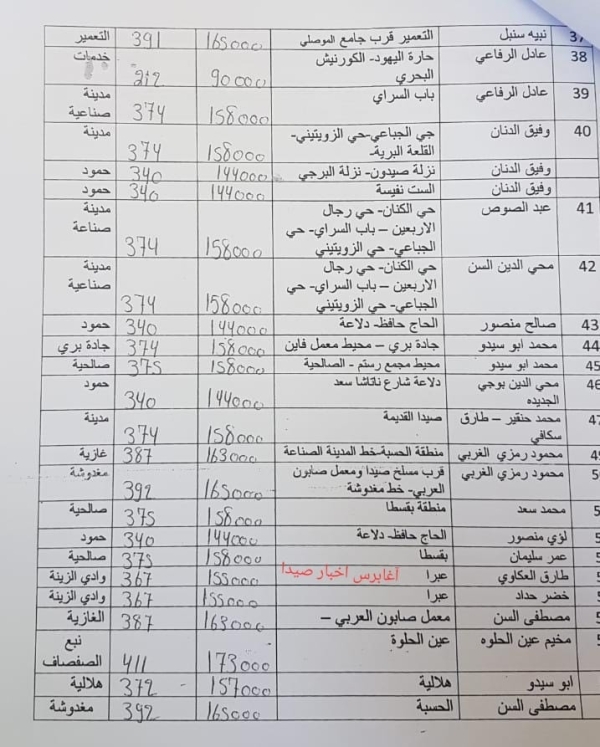 37 نبيه سنبل التعمير قرب جامع الموصلي 165000 391 التعمير
38 عادل الرفاعي حارة اليهود- الكورنيش 90000 212 خدمات
البحري
39 عادل الرفاعي باب السراي 158000 374 مدينة
صناعية
40 وفيق الدنان حي الجباعي-حي الزويتيني- 158000 374 مدينة
القلعة البرية-
وفيق الدنان نزلة صيدون- نزلة البرجي 144000 340 حمود
وفيق الدنان الست نفيسة 144000 340 حمود
41 عبد الصوص حي الكنان- حي رجال 158000 374 مدينة
الاربعين – باب السراي- حي صناعة
الجباعي- حي الزويتيني
42 محي الدين السن حي الكنان- حي رجال 158000 374 مدينة
الاربعين – باب السراي- حي صناعية
الجباعي- حي الزويتيني
43 صالح منصور الحاج حافظ- دلاعة 144000 340 حمود
44 محمد ابو سيدو جادة بري – محيط معمل فاين 158000 374 جادة بري
45 محمد ابو سيدو محيط مجمع رستم - الصالحية 158000 375 صالحية
46 محي الدين بوجي دلاعة شارع ناتاشا سعد 144000 340 حمود
الجديده
47 محمد حنقير – طارق صيدا القديمة 158000 374 مدينة
سكافي
محمود رمزي الغربي منطقة الحسبة-خط المدينة الصناعة 163000 387 غازية
محمود رمزي الغربي قرب مسلخ صيدا ومعمل صابون 165000 392 مغدوشة
العربي- خط مغدوشة
محمد سعد منطقة بقسطا 158000 375 صالحية
لؤي منصور الحاج حافظ- دلاعة 144000 340 حمود
عمر سليمان بقسطا 158000 375 صالحية
طارق العكاوي عبرا آغابرس اخبار صيدا 155000 367 وادي الزينة
خضر حداد عبرا 155000 367 وادي الزينة
مصطفى السن معمل صابون العربي – 163000 387 الغازية
مخيم عين الحلوه عين الحلوة 173000 411 نبع
الصفصاف
ابو سيدو هلالية 157000 372 هلالية
مصطفى السن الحسبة 165000 392 مغدوشة